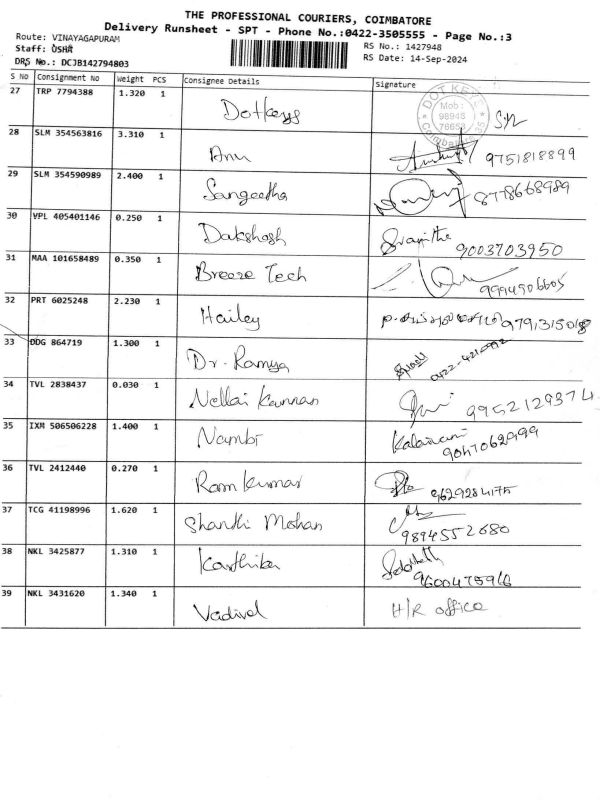 THE PROFESSIONAL COURIERS, COIMBATORE
Delivery Runsheet - SPT - Phone No.:0422-3505555 - Page No.:3
Route: VINAYAGAPURAM
Staff: USHA
DRS No.: DCJB142794803
RS No.: 1427948
RS Date: 14-Sep-2024
S NO Consignment No Weight PCS Consignee Details Signature
27 TRP 7794388 1.320 1 Dotkeys DOT KEYS Mob : 98946 Coimbatore
28 SLM 354563816 3.310 1 Anu 9751818899
29 SLM 354590989 2.400 1 Sangeetha 8778668989
30 VPL 405401146 0.250 1 Dakshosh 9003703950
31 MAA 101658489 0.350 1 Breeze Tech 9994906605
32 PRT 6025248 2.230 1 Hailey
33 DDG 864719 1.300 1 Dr. Ramya
34 TVL 2838437 0.030 1 Nellai Kannan 9952129374
35 IXM 506506228 1.400 1 Nambi Kalaivani 9047062999
36 TVL 2412440 0.270 1 Ram Kumar 9629284175
37 TCG 41198996 1.620 1 Shanthi Mohan 9894552680
38 NKL 3425877 1.310 1 Karthika 9600475946
39 NKL 3431620 1.340 1 Vadivel H/R office